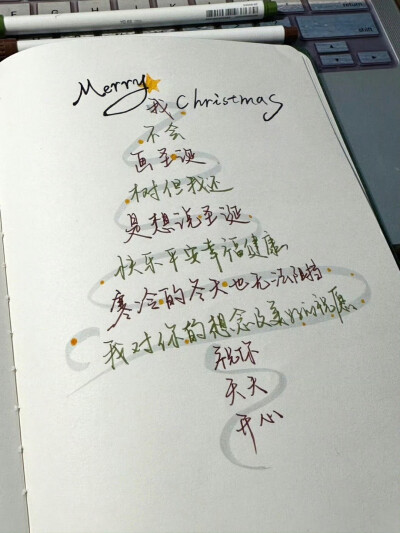 Merry Christmas
我
不会
画圣诞
树但我还
是想说圣诞
快乐平安幸福健康
寒冷的冬天也无法阻挡
我对你的想念及美好的祝愿
祝你
天天
开心